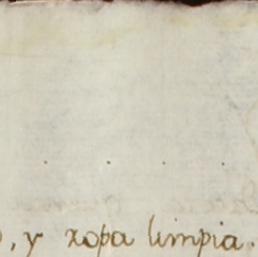 , y ropa limpia.